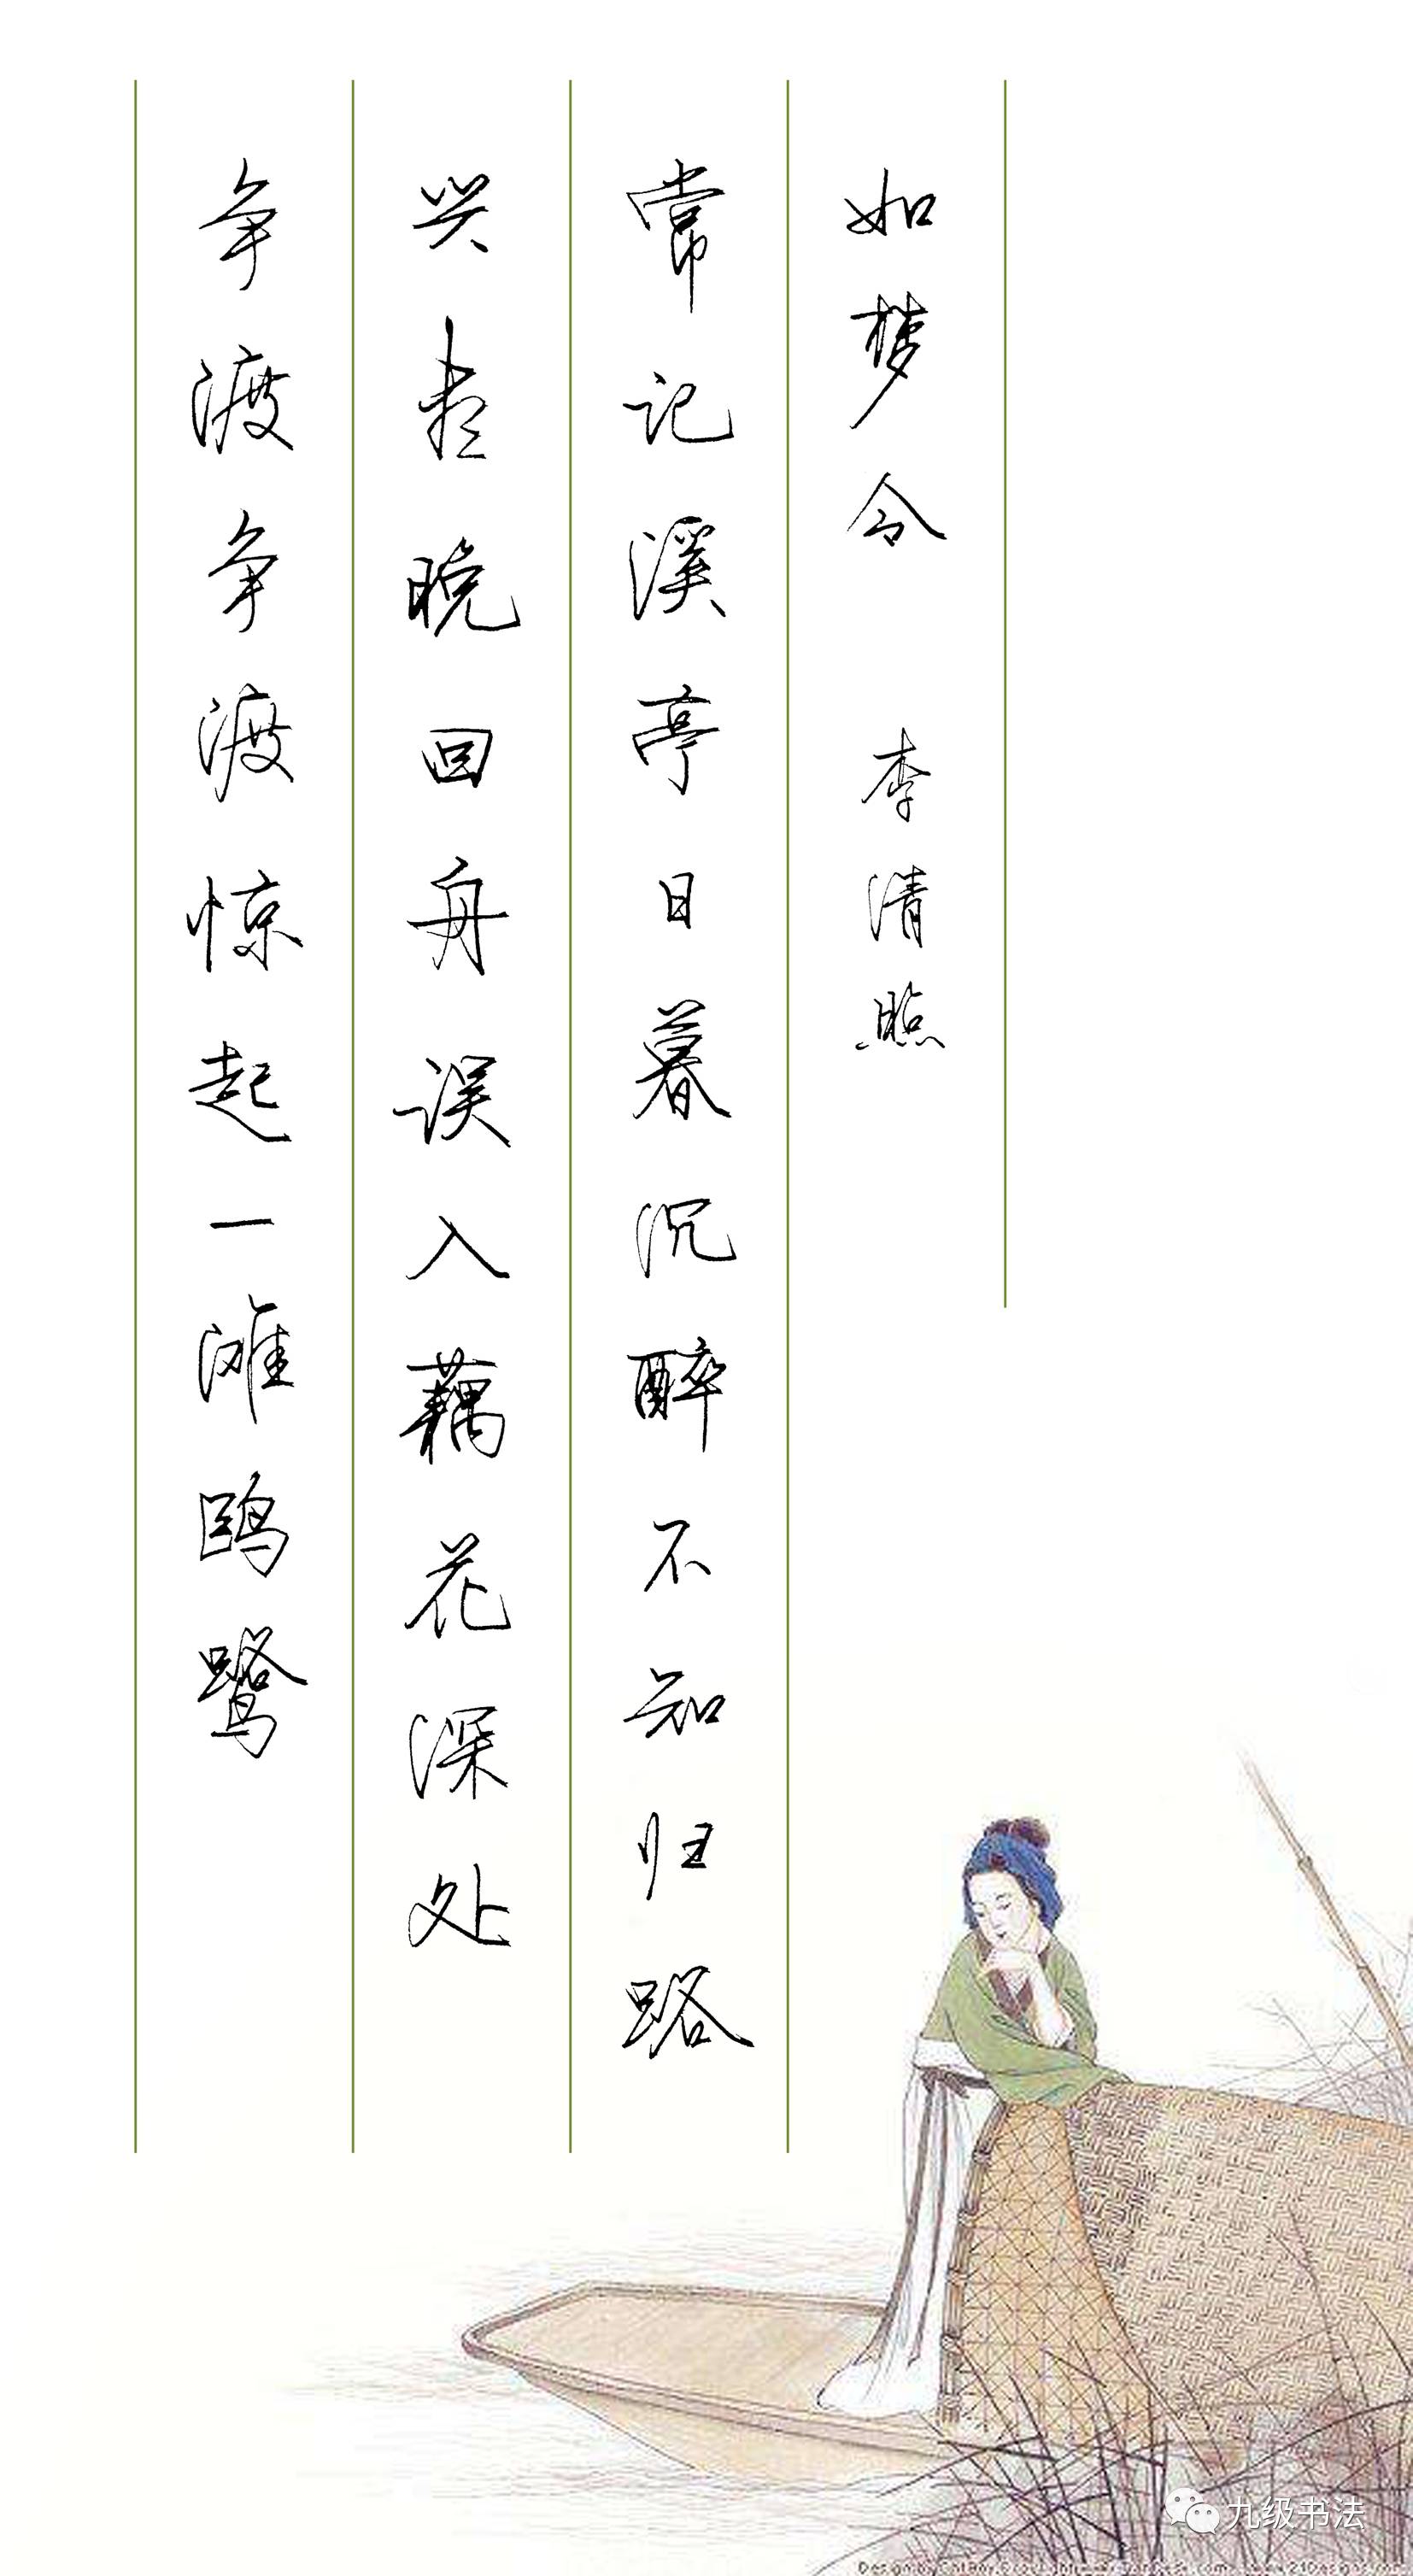 如梦令 李清照
常记溪亭日暮沉醉不知归路
兴尽晚回舟误入藕花深处
争渡争渡惊起一滩鸥鹭
九级书法